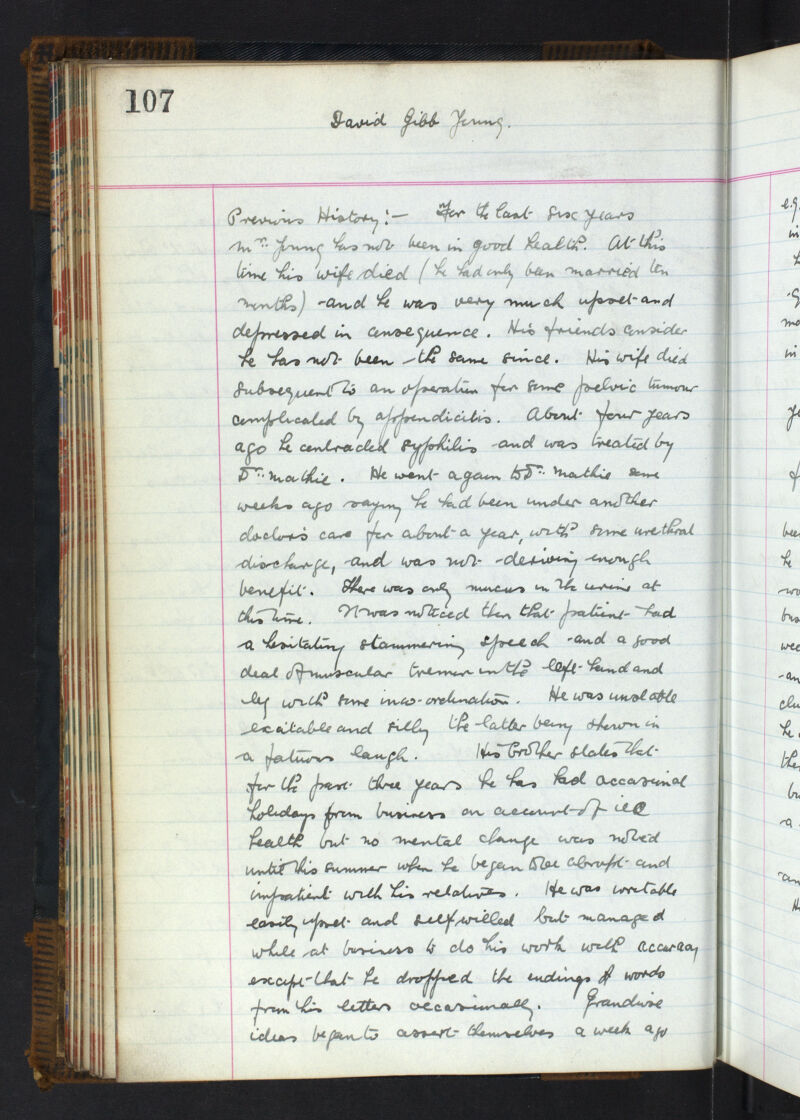 107
David Gibb Young.
Previous History:— For the last six years
Mr. Young has not been in good health. At this
time his wife died (he had only been married ten
months) and he was very much upset and
depressed in consequence. His friends consider
he has not been the same since. His wife died
subsequent to an operation for some pelvic tumour
complicated by appendicitis. About four years
ago he contracted syphilis and was treated by
Dr. Mathie. He went again to Dr. Mathie some
weeks ago saying he had been under another
doctor's care for about a year, with some urethral
discharge, and was not deriving enough
benefit. There was only mucus in the urine at
this time. It was noticed then that patient had
a hesitating stammering speech and a good
deal of muscular tremor in the left hand and
leg with some inco-ordination. He was unstable
excitable and silly the latter being shown in
a fatuous laugh. His brother states that
for the past three years he has had occasional
holidays from business on account of ill
health but no mental change was noted
until this summer when he began to be abrupt and
impatient with his relatives. He was irritable
easily upset and self willed but managed
while at business to do his work with accuracy
except that he dropped the endings of words
from his letters occasionally. Grandiose
ideas began to assert themselves a week ago